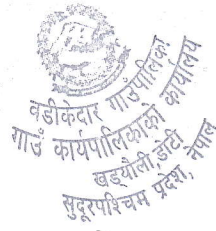 बडीकेदार गाउँपालिका
गाउँ कार्यपालिकाको कार्यालय
खड्यौली, डोटी
सुदूरपश्चिम प्रदेश, नेपाल